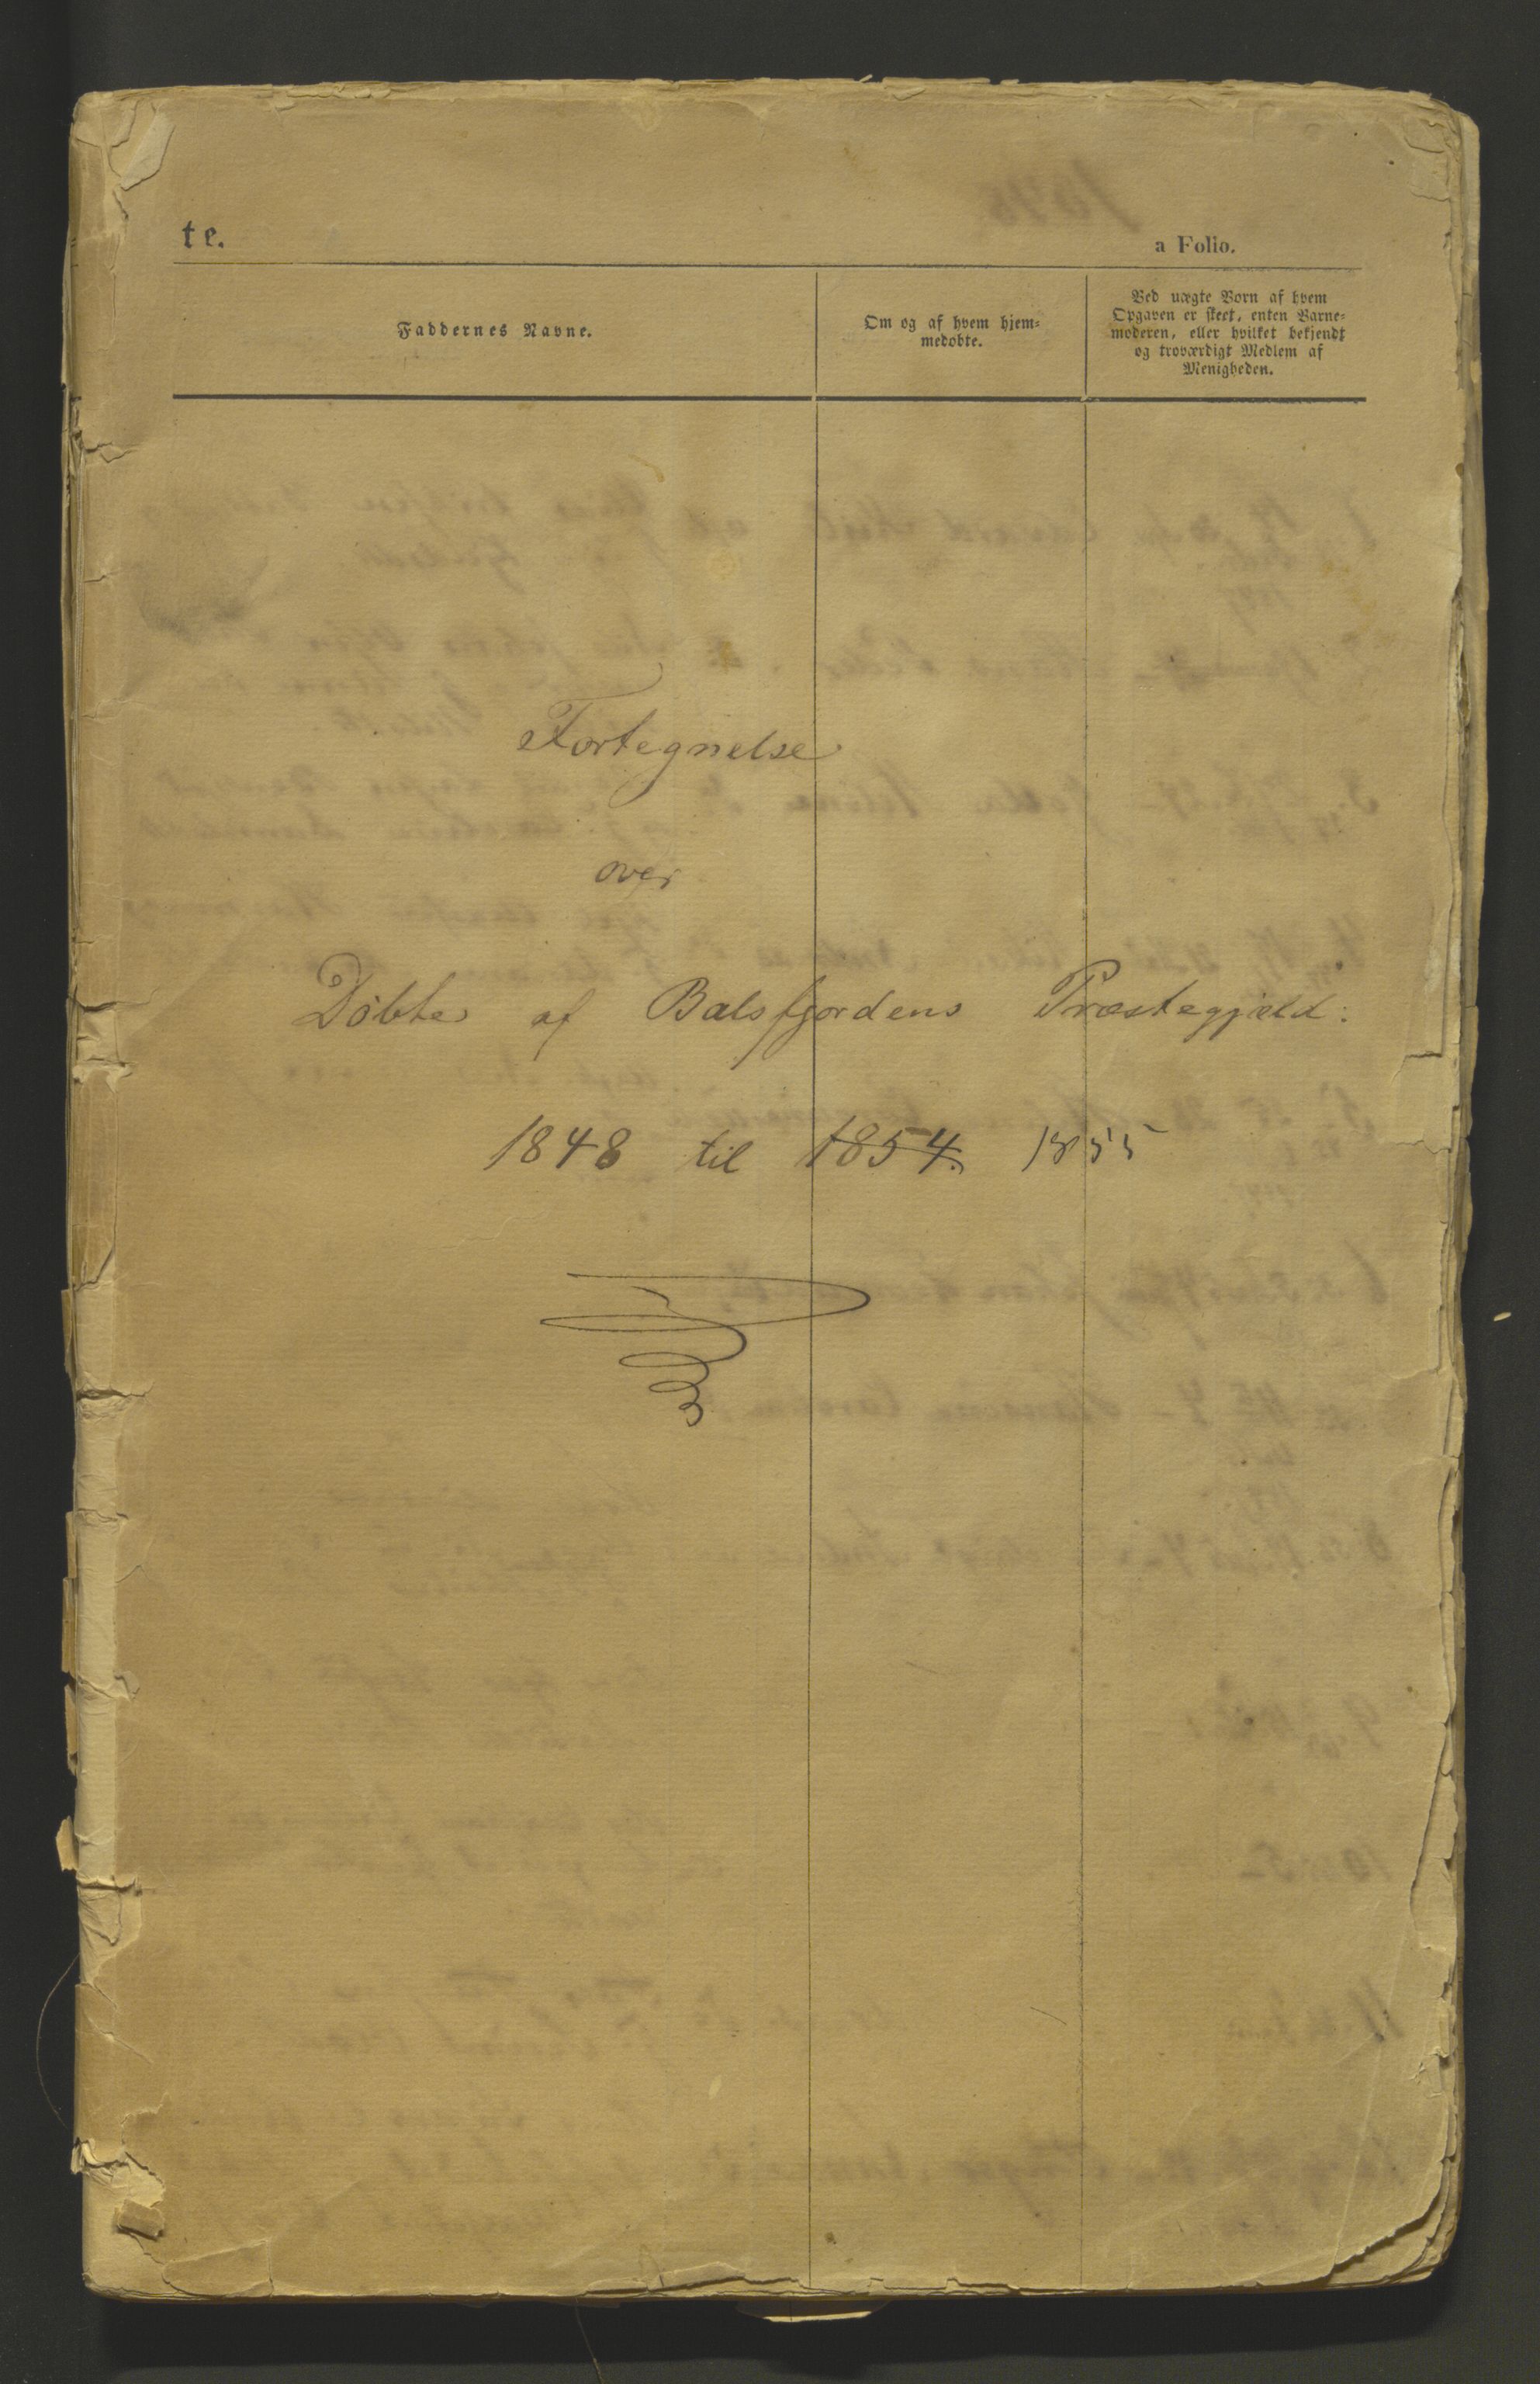 te.
a Folio.
Faddernes Navne.
Om og af hvem hjem=
medøbte.
Ved uægte Børn af hvem
Opgaven er skeet, enten Barne=
moderen, eller hvilket bekjendt
og troværdigt Medlem af
Menigheden.
Fortegnelse
over
Døbte af Balsfjordens Præstegjæld.
1848 til 1854. 1855